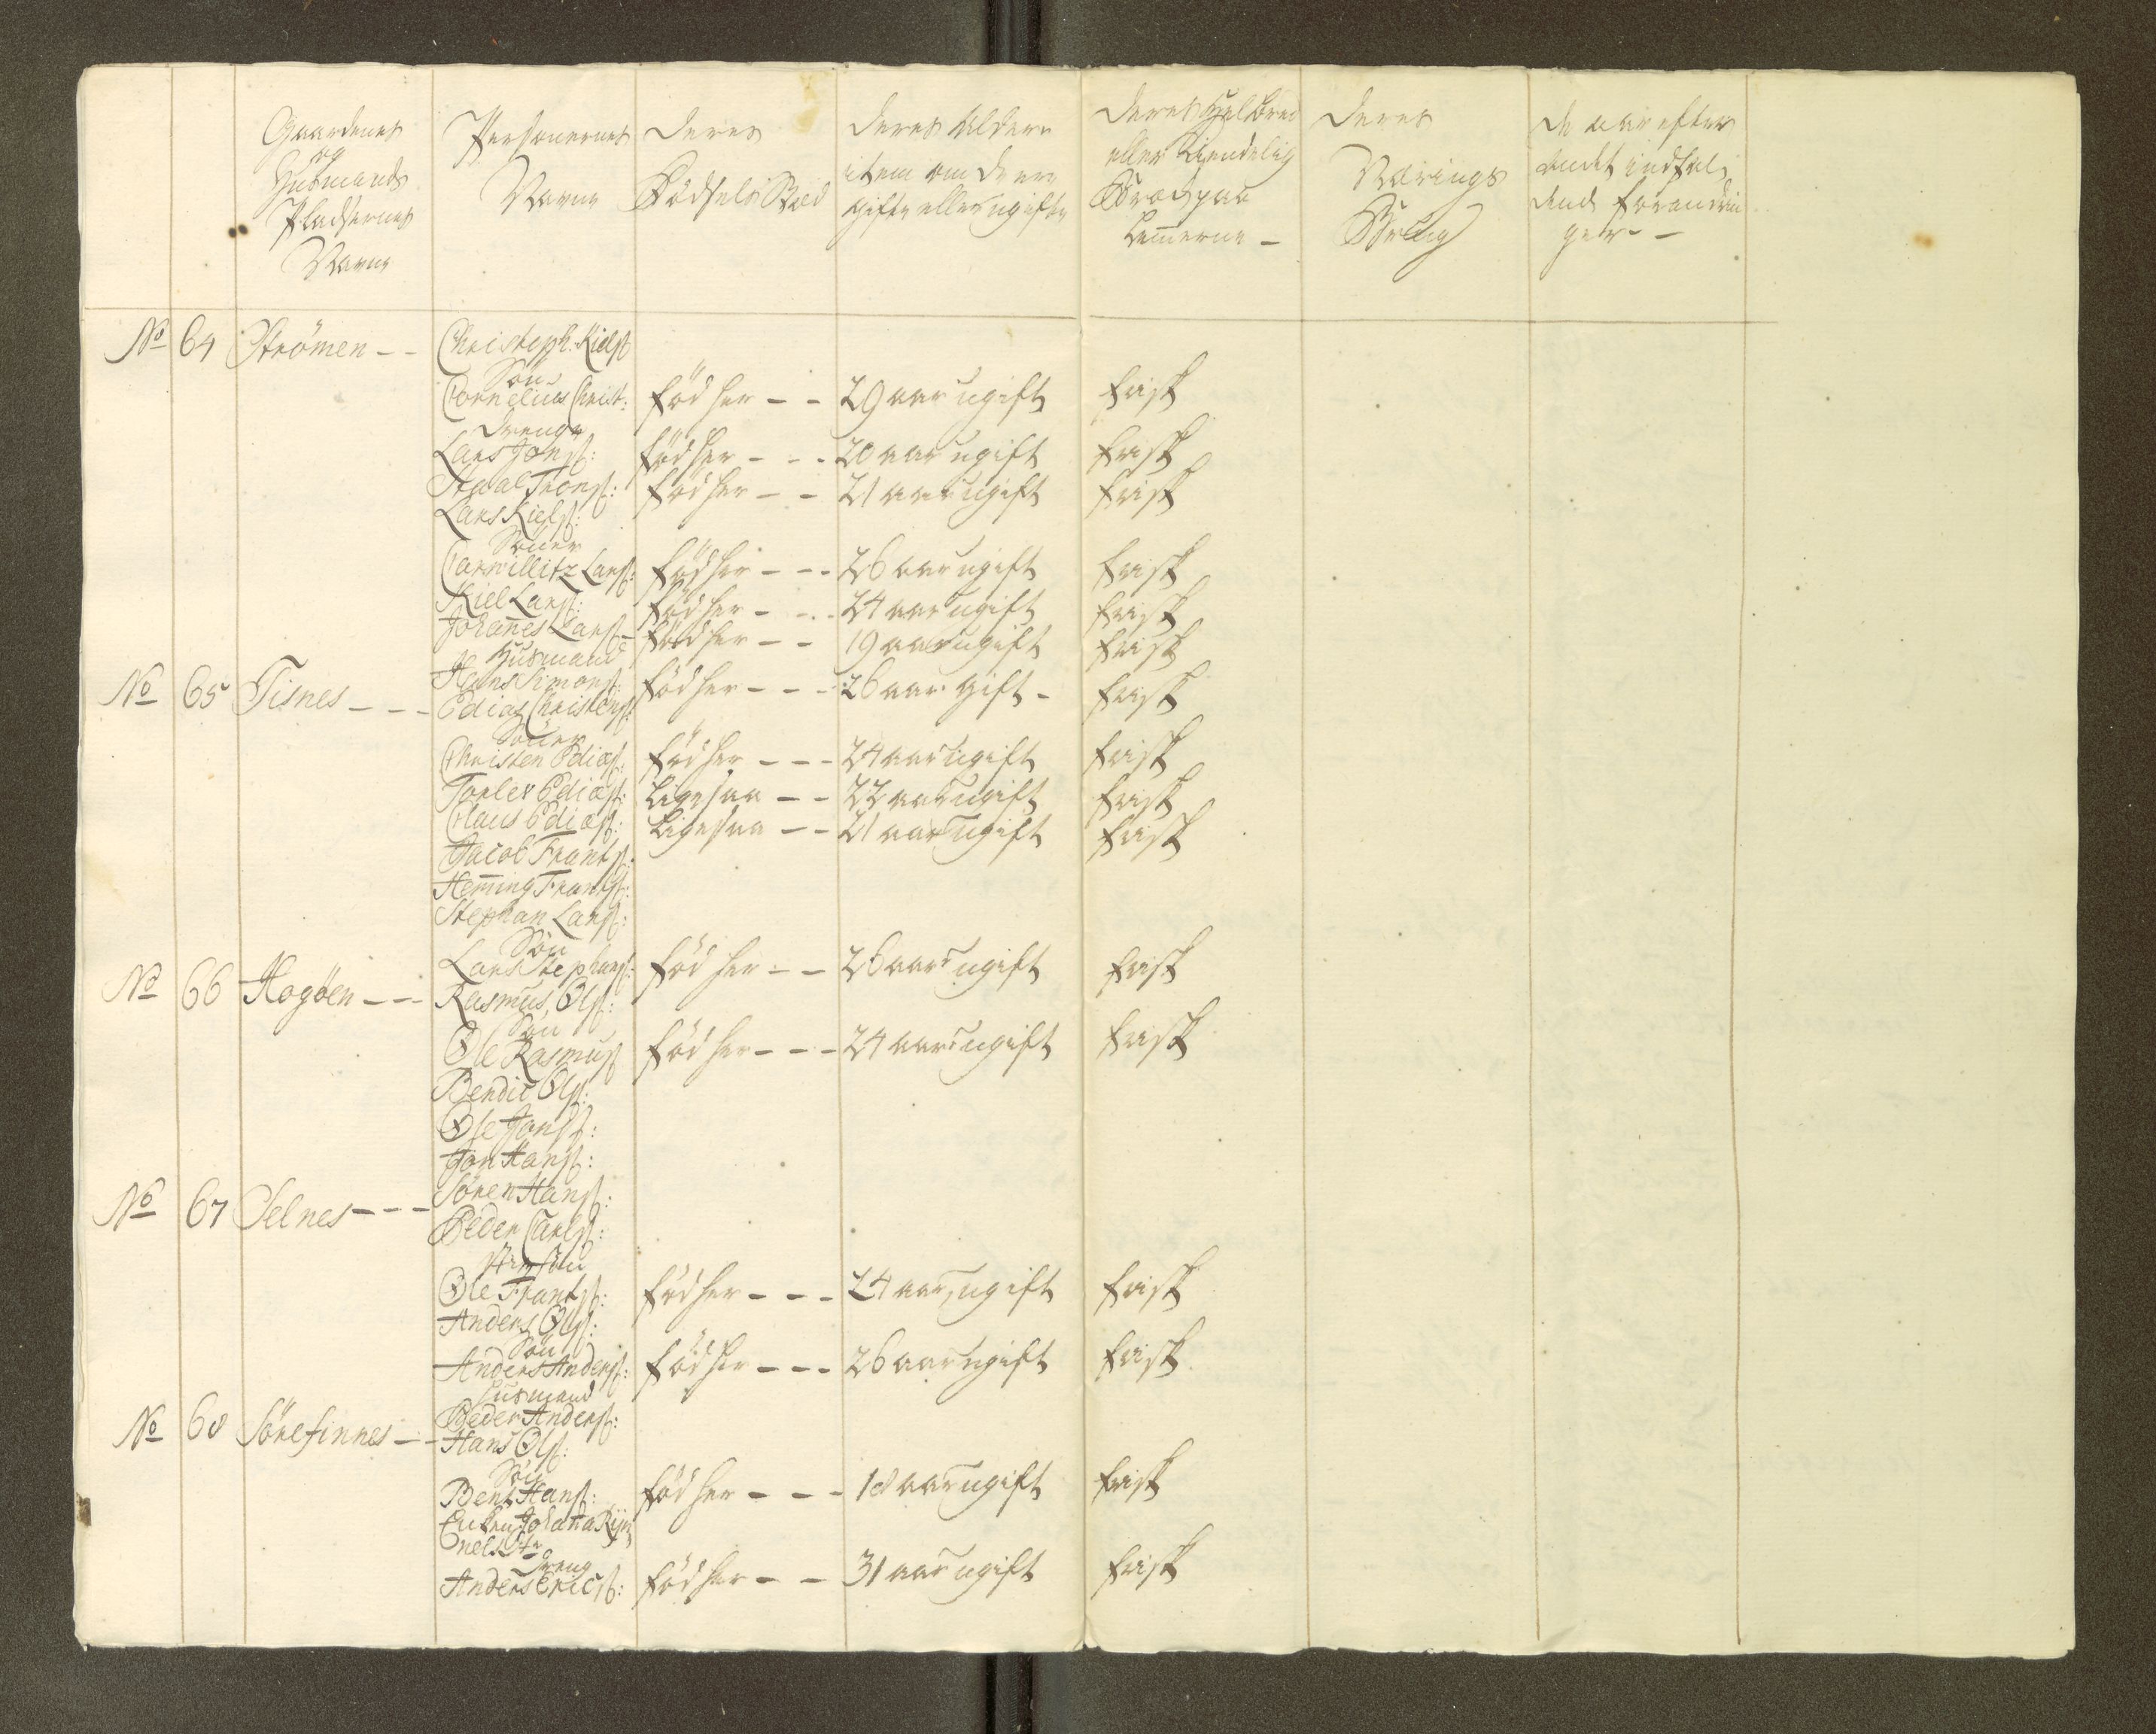 Gaardenes
og
Husmands
Pladsernes
Navne
Personernes
Navne
deres
Födsels Stæd
deres Aldere
item om de ere
Gifte eller ugifte
deres Helbred
eller
Lemerne -
deres
Nærings
Brug
de aar efter
andet indfal-
dend forandrin
ger - -
No 64 Strömen - - Christoph. Kiels
Sön
Cornelius Christ: föd her - - 29 aar ugift frisk
drenge
Lars Jons: föd her - - - 20 aar ugift frisk
Staal Trons: föd her - - 21 aar ugift frisk
Lars Kiels:
Söner
Carwillitz Lars: föd her - - - 26 aar ugift frisk
Kiel Lars: föd her - - - 24 aar ugift frisk
Johanes Lars: föd her - - 19 aar ugift frisk
Husmand
Hans Simons: föd her - - - 26 aar gift - frisk
No 65 Tisnes - - - Edias Christens:
Söner
Christen Edias: föd her - - - 24 aar ugift frisk
Torler Edias: Ligesaa - - 22 aar ugift frisk
Claus Edias: Ligesaa - - 21 aar ugift frisk
Jacob Frants:
Heming Frants:
Stephan Lars:
Sön
Lars Stephans: föd her - - 26 aar ugift frisk
No 66 Hogöen - - - Rasmus Ols:
Sön
Ole Rasmus föd her - - - 24 aar ugift frisk
Bendic Ols:
Ole Jons:
Jon Hans:
No 67 Selnes - - - Sören Hans:
Peder Carls:
Ole Frants: föd her - - - 24 aar, ugift frisk
Anders Ols:
Sön
Anders Anders: föd her - - - 26 aar ugift frisk
Husmand
Peder Anders:
No 68 Sörefinnes - - Hans Ols:
Sön
Bent Hans: föd her - - - 18 aar ugift frisk
Enken Johana
Dreng
Anders Erics: föd her - - 31 aar ugift frisk